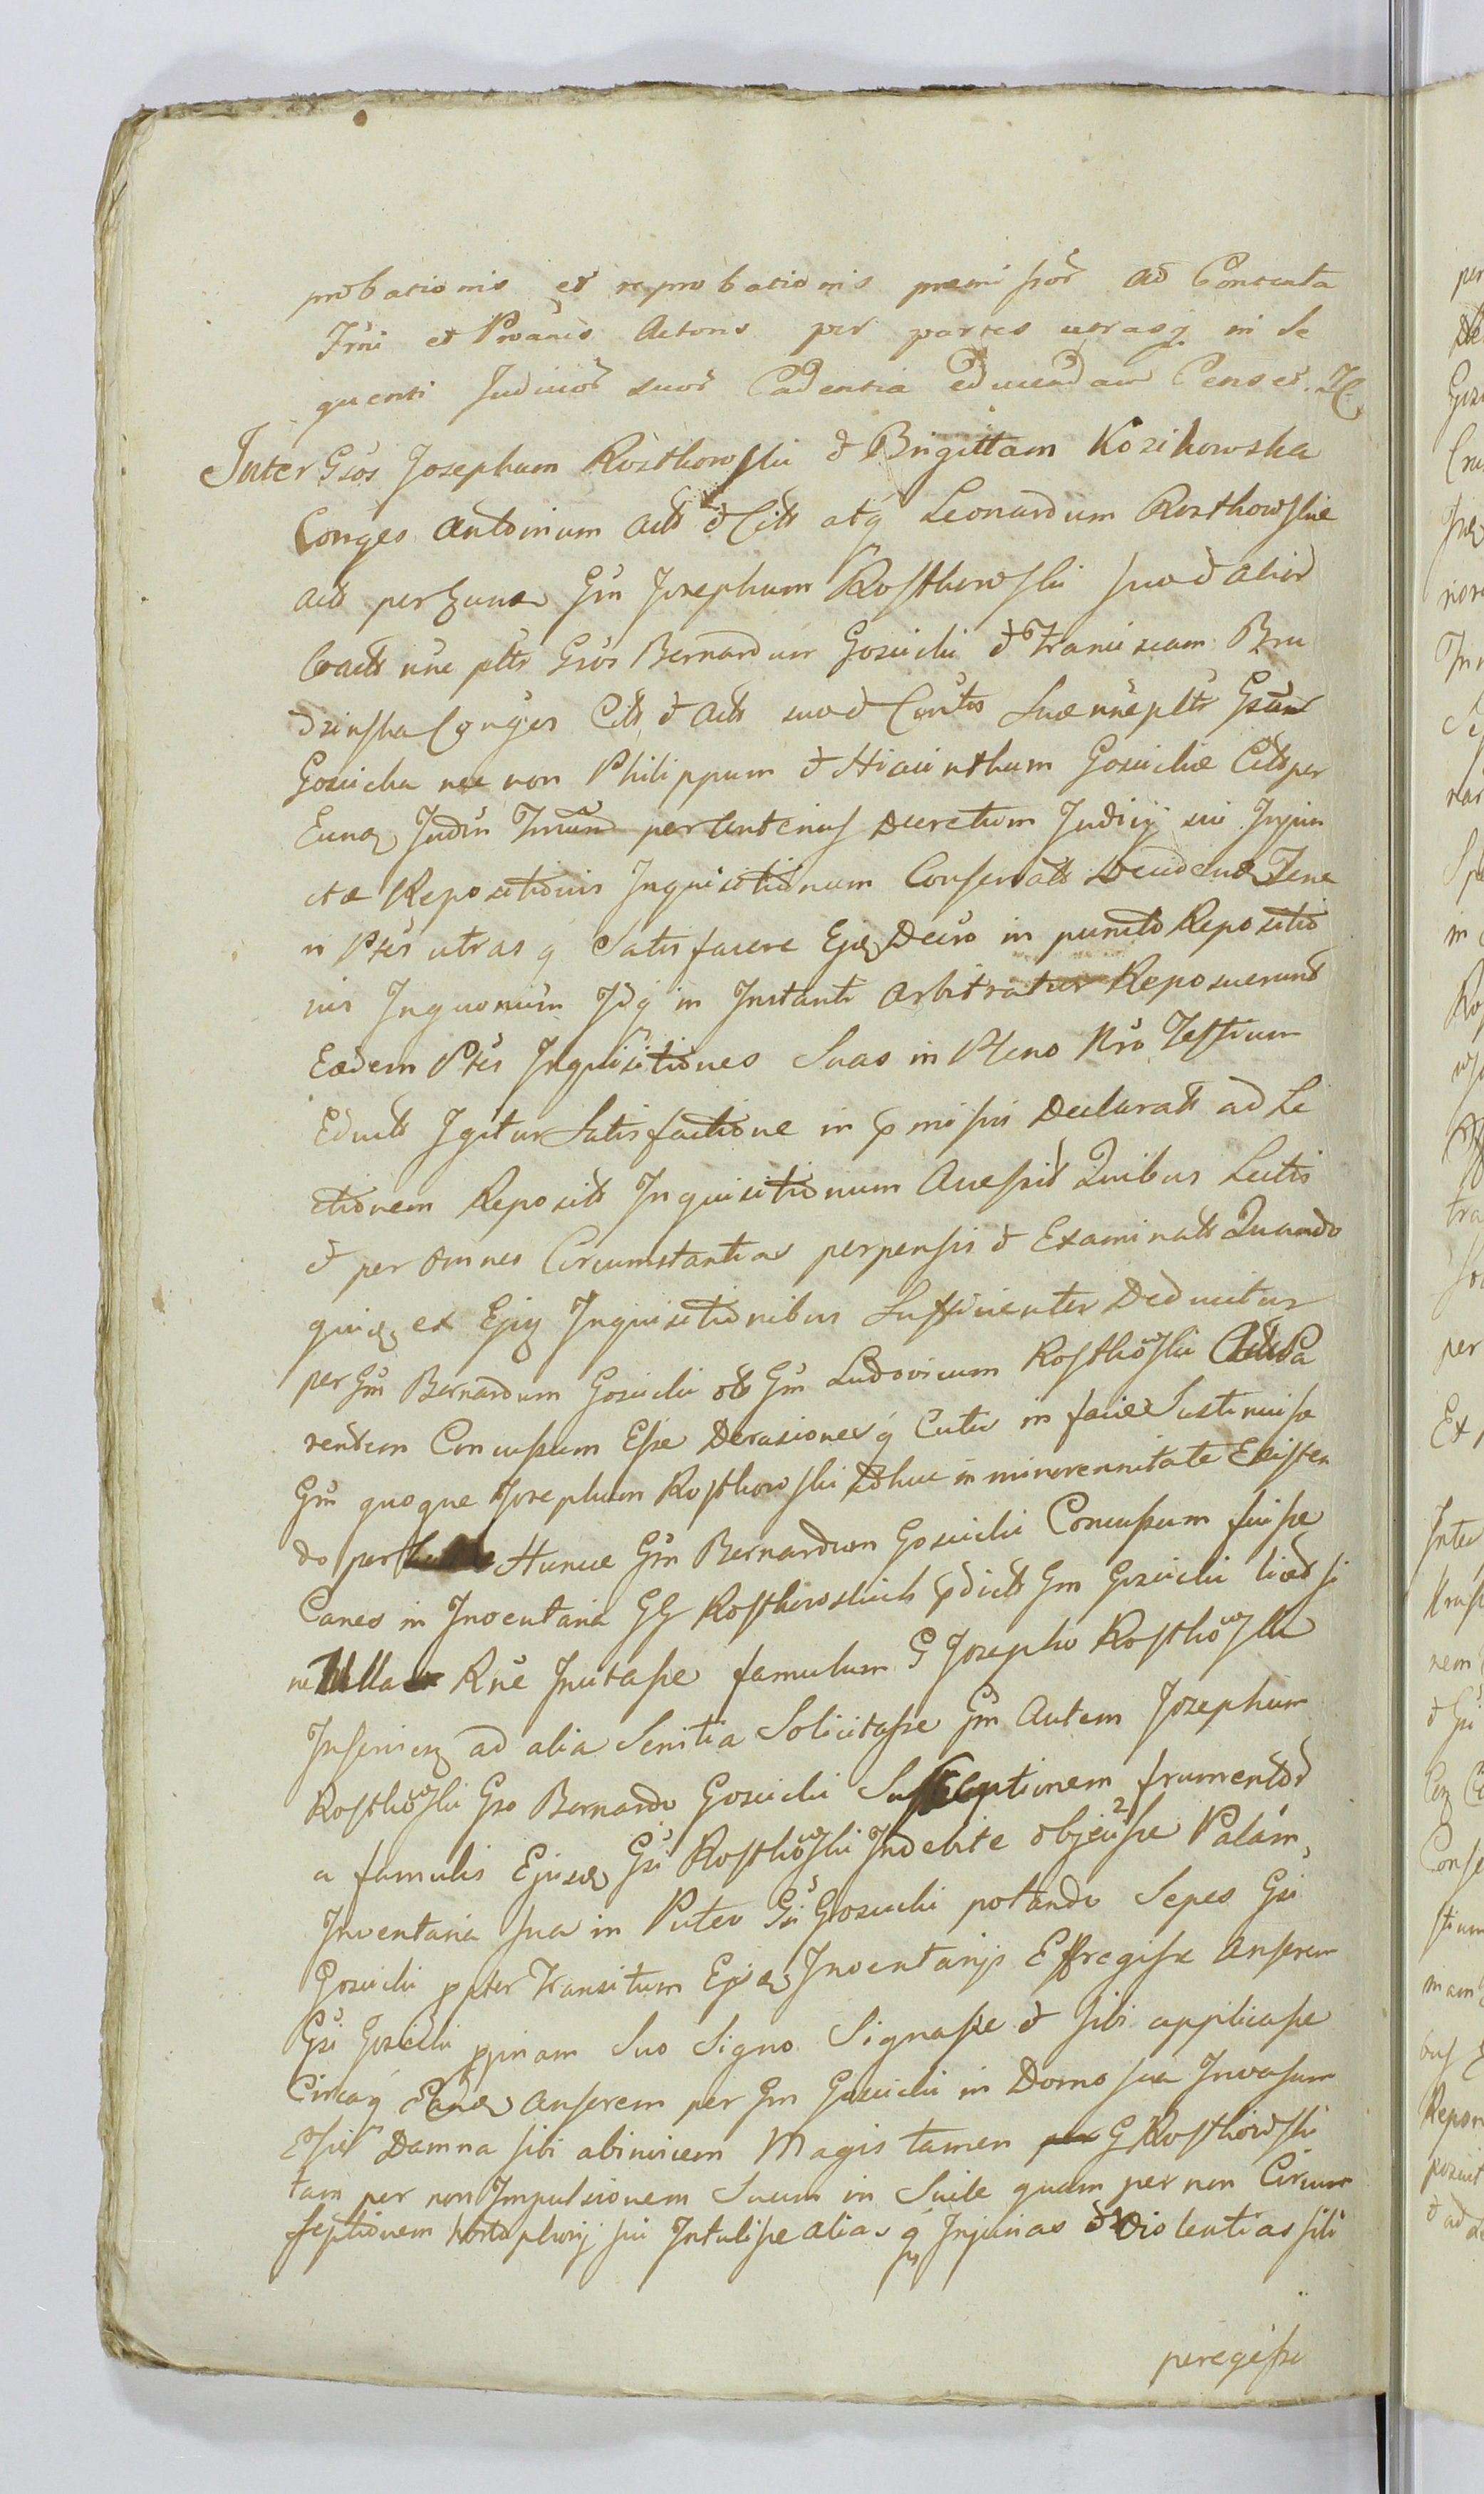 probationis et reprobationis premissor ad Contenta
Trni et Proanis Actoris per partes utrasq in Se
quenti Judicior suor Cadentia educendam Censet.
Inter Gsos Josephum Rostkowski & Brigittam Kozikowska
Conges Antonium Acts & Cits atq Leonardum Rostkowskie
Acts per Gm Josephum Rostkowski suo & alior
Coacts nne pltr Gsos Bernardum Gosiicki & Franciscam Bru
dzinska Conges Cits & Acts suo &
Gosiicka nec non Philippum & Hiacinthum Gosiickie Cits per
Eund Judm per Antenus Decretum Judicij sui Injun
ctæ Repositionis Inquisitionum Conservatt Tene
ri Ptes utrasq Satisfacere Ejsd Decro in puncto Repositio
nis Inquonum Idq in Instanti Arbitratur Reposuerunt
Eædem Ptes Inquisitiones Suas in Pleno Nro Testium
Educts Igitur Satisfactione in pmissis Declarats ad Le
ctionem Reposits Inquisitionum Accessit Quibus Lectis
& per omnes Circumstantias perpensis & Examinats Quando
quid ex Ejsd Inquisitionibus Sufficienter Deducitur
per Gm Bernardum Gosiicki olim Gm Ludovicum Rostkowski Acts Pa
rentem Concussum Esse Derasionesq Cutis in facie Sustinuisse
Gm quoque Josephum Rostkowski adhuc in minorennitate Existen
do per Hunce Gm Bernardum Gosiicki Concussum fuisse
Canes in Inventaria GG Rostkowskich pdict Gm Gosiicki licet si
ne Ulla Rne Incitasse famulum G Josepho Rostkowski
Inservien ad alia Servitia Solicitasse Gm Autem Josephum
Rostkowski Gso Bernardo Gosiicki Susceptionem frumentor
a famulis Ejusd Gsi Rostkowski Indebite objecisse Palam,
Inventaria sua in Puteo Gsi Gosiicki potando Sepes Gsi
Gosiicki ppter Transitum Ejsd Inventarijs Effregisse Anserem
Gsi Gosiicki ppinam Suo Signo Signasse & sibi applicasse
Circaq Eund Anserem per Gm Gosiicki in Domo sua Invasum
Esse Damna sibi abinvicem Magis tamen G Rostkowski
tam per non Impulsionem Suum in Suile quam per non Circum
septionem horto sui Intulisse aliasq Injurias & Violentias sibi
peregisse